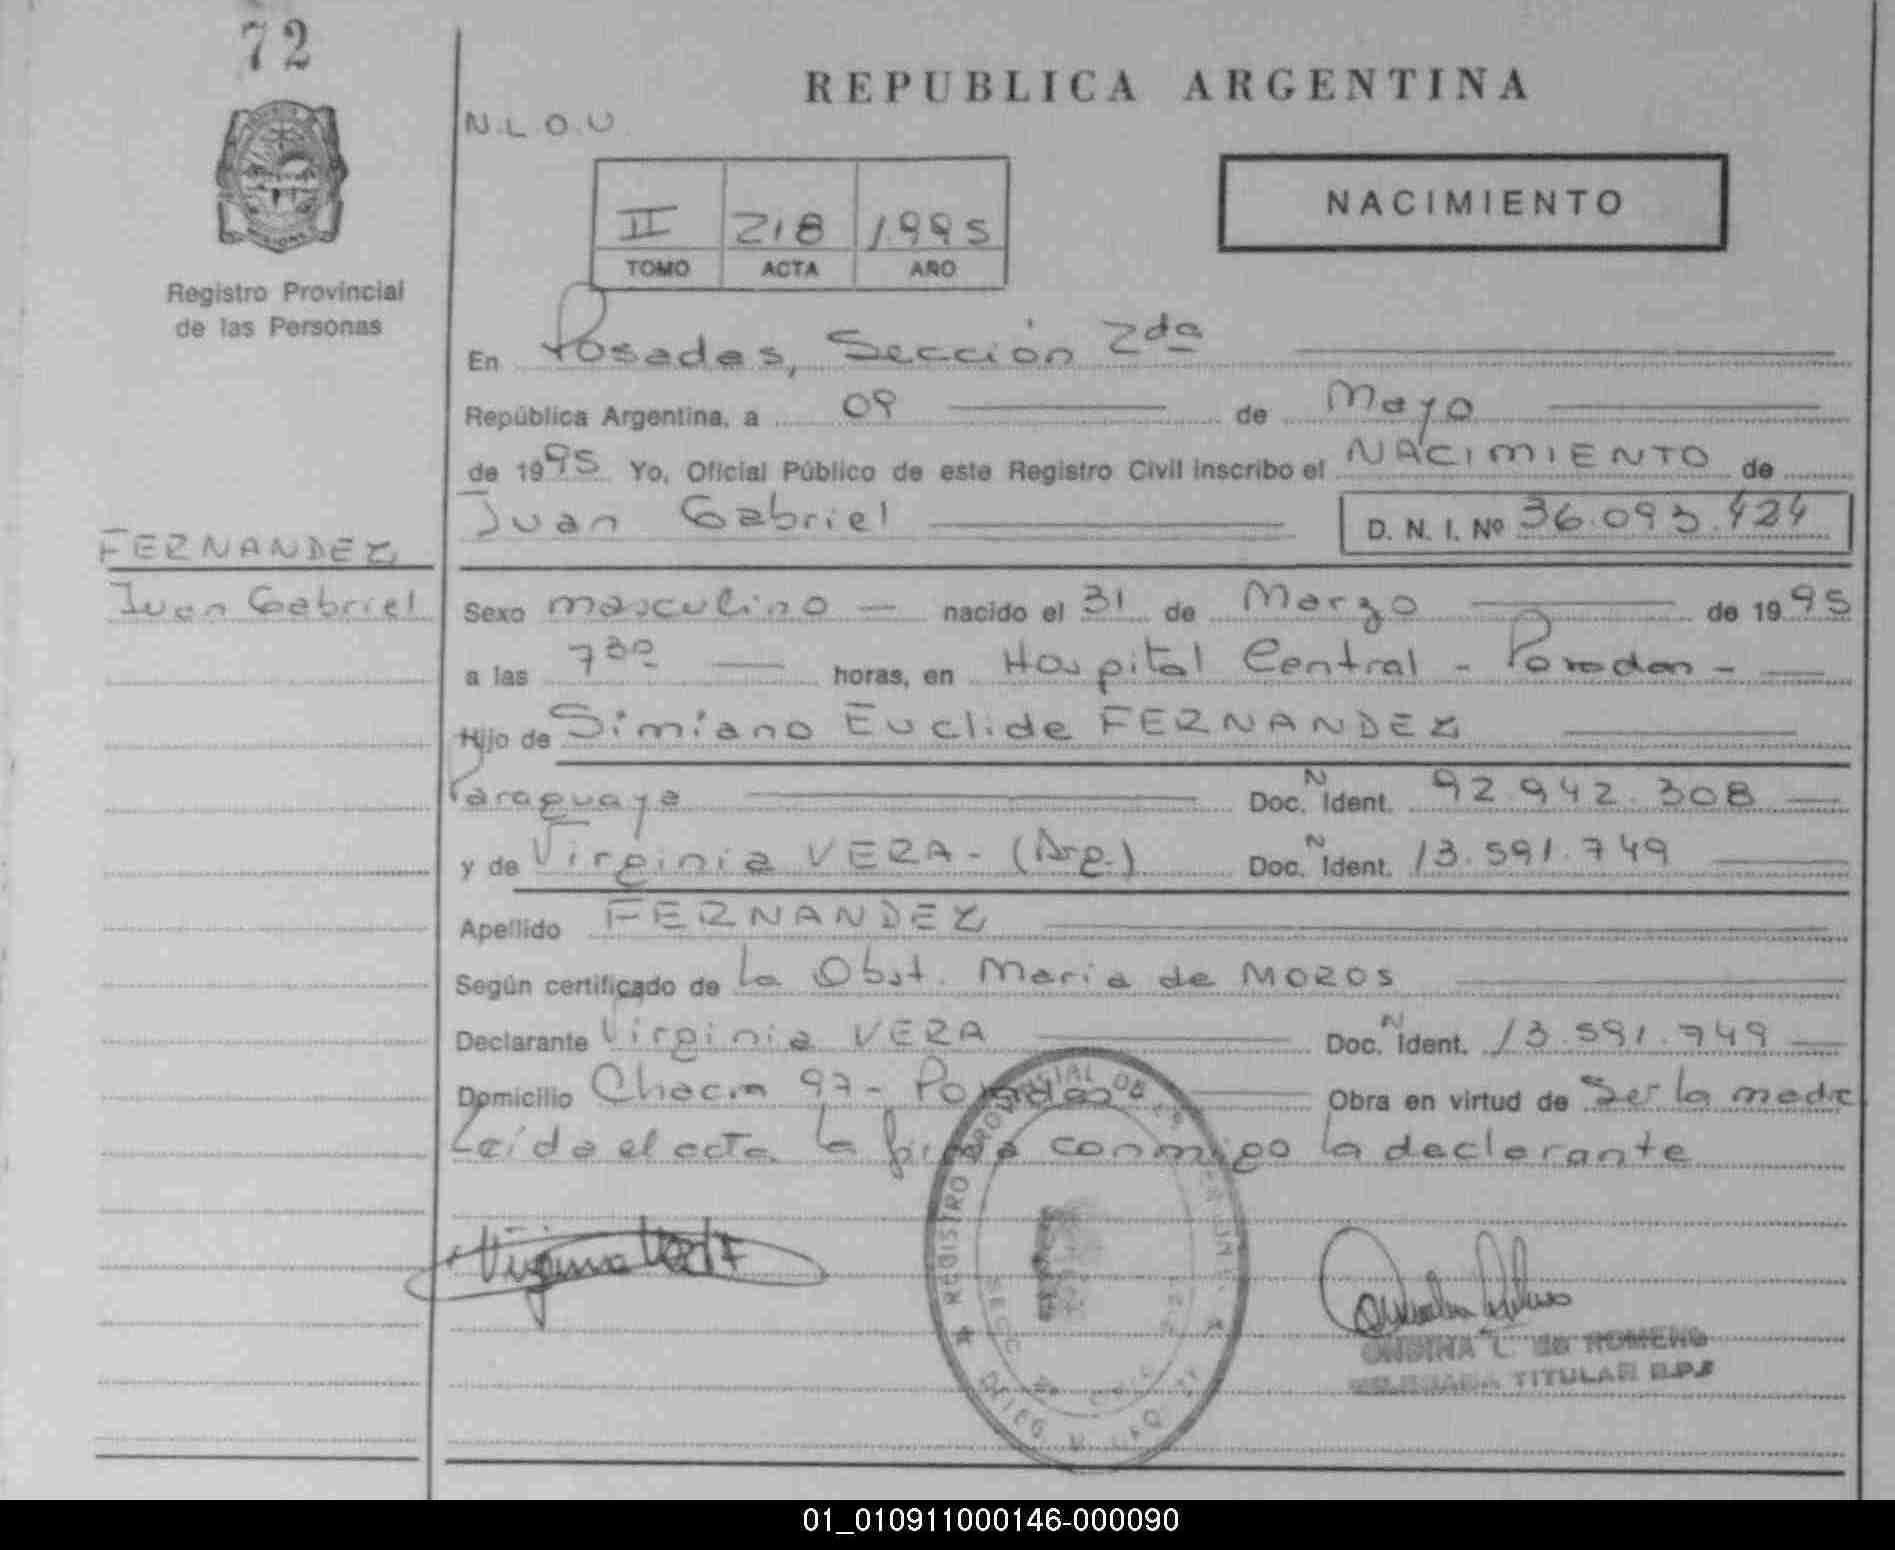 72
REPUBLICA ARGENTINA
N.L.O.U
NACIMIENTO
II 218 1995
TOMO ACTA AÑO
Registro Provincial
de las Personas
En Posadas, Sección 2da
República Argentina, a 09 de Mayo
de 1995 Yo, Oficial Público de este Registro Civil inscribo el NACIMIENTO de
Juan Gabriel D. N. I. Nº 36.093.424
FERNANDEZ
Juan Gabriel
Sexo masculino nacido el 31 de Marzo de 1995
a las 7 30 horas, en Hospital Central - Posadas -
Hijo de Simiano Euclide FERNANDEZ
Paraguaya Doc. N Ident. 92.942.308
y de Virginia VERA - (Arg.) Doc. N Ident. 13.591.749
Apellido FERNANDEZ
Según certificado de la Obst. Maria de MOROS
Declarante Virginia VERA Doc. N Ident. 13.591.749
Domicilio Chacra 97 - Posadas Obra en virtud de ser la madre
Leída el acta la firma conmigo la declarante
REGISTRO PROVINCIAL DE LAS PERSONAS
ONDINA L. de ROMERO
DELEGADA TITULAR R.P.P.
01_010911000146-000090